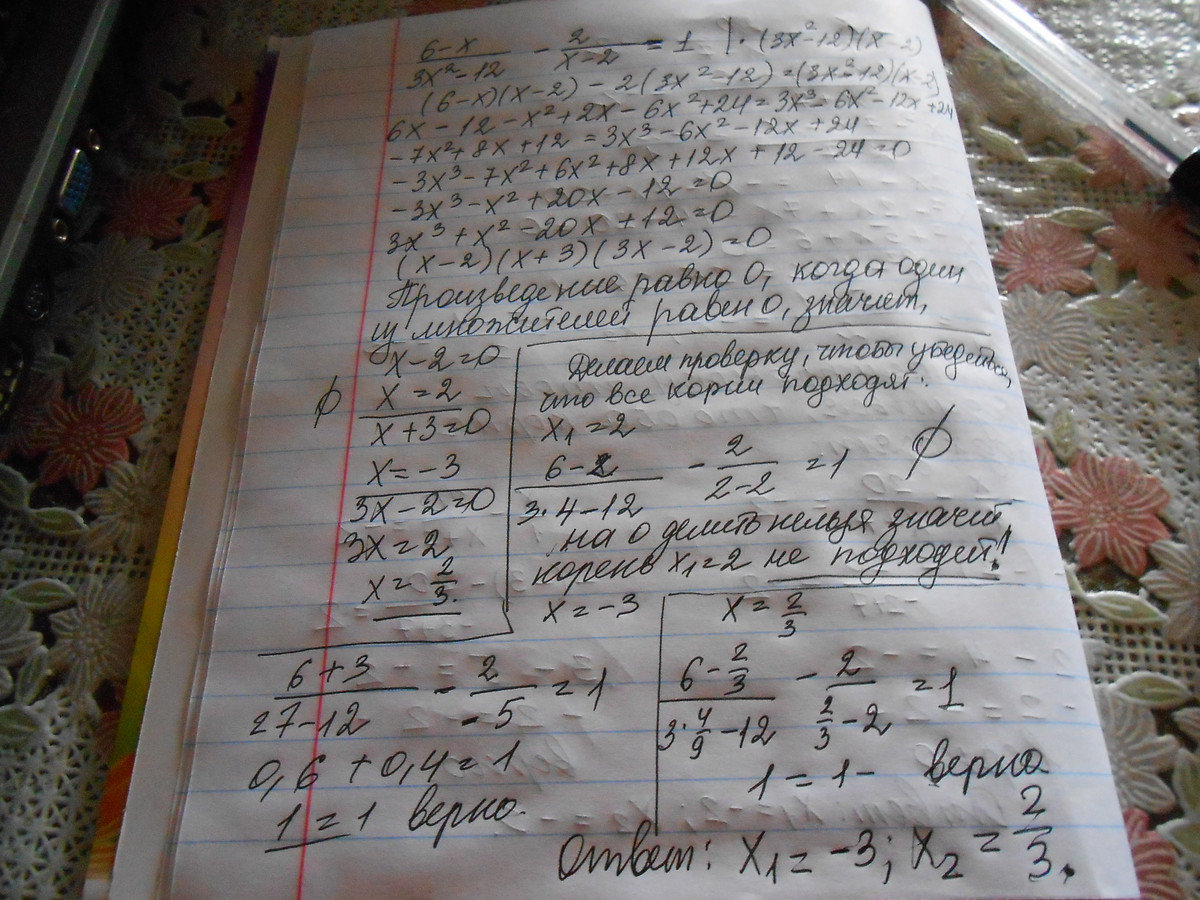 (6-x)/(3x²-12) - 2/(x-2) = 1 | · (3x²-12)(x-2)
(6-x)(x-2) - 2(3x²-12) = (3x²-12)(x-2)
6x - 12 - x² + 2x - 6x² + 24 = 3x³ - 6x² - 12x + 24
-7x² + 8x + 12 = 3x³ - 6x² - 12x + 24
-3x³ - 7x² + 6x² + 8x + 12x + 12 - 24 = 0
-3x³ - x² + 20x - 12 = 0
3x³ + x² - 20x + 12 = 0
(x-2)(x+3)(3x-2) = 0
Произведение равно 0, когда один
из множителей равен 0, значит,
x - 2 = 0
∅ x = 2
x + 3 = 0
x = -3
3x - 2 = 0
3x = 2
x = 2/3.
Делаем проверку, чтобы убедиться,
что все корни подходят:
x₁ = 2
(6-2)/(3·4-12) - 2/(2-2) = 1 ∅
на 0 делить нельзя значит
корень x₁=2 не подходит!
x = -3
(6+3)/(27-12) - 2/(-5) = 1
0,6 + 0,4 = 1
1 = 1 верно.
x = 2/3
(6 - 2/3)/(3·4/9 - 12) - 2/(2/3 - 2) = 1
1 = 1 - верно
Ответ: x₁ = -3; x₂ = 2/3.